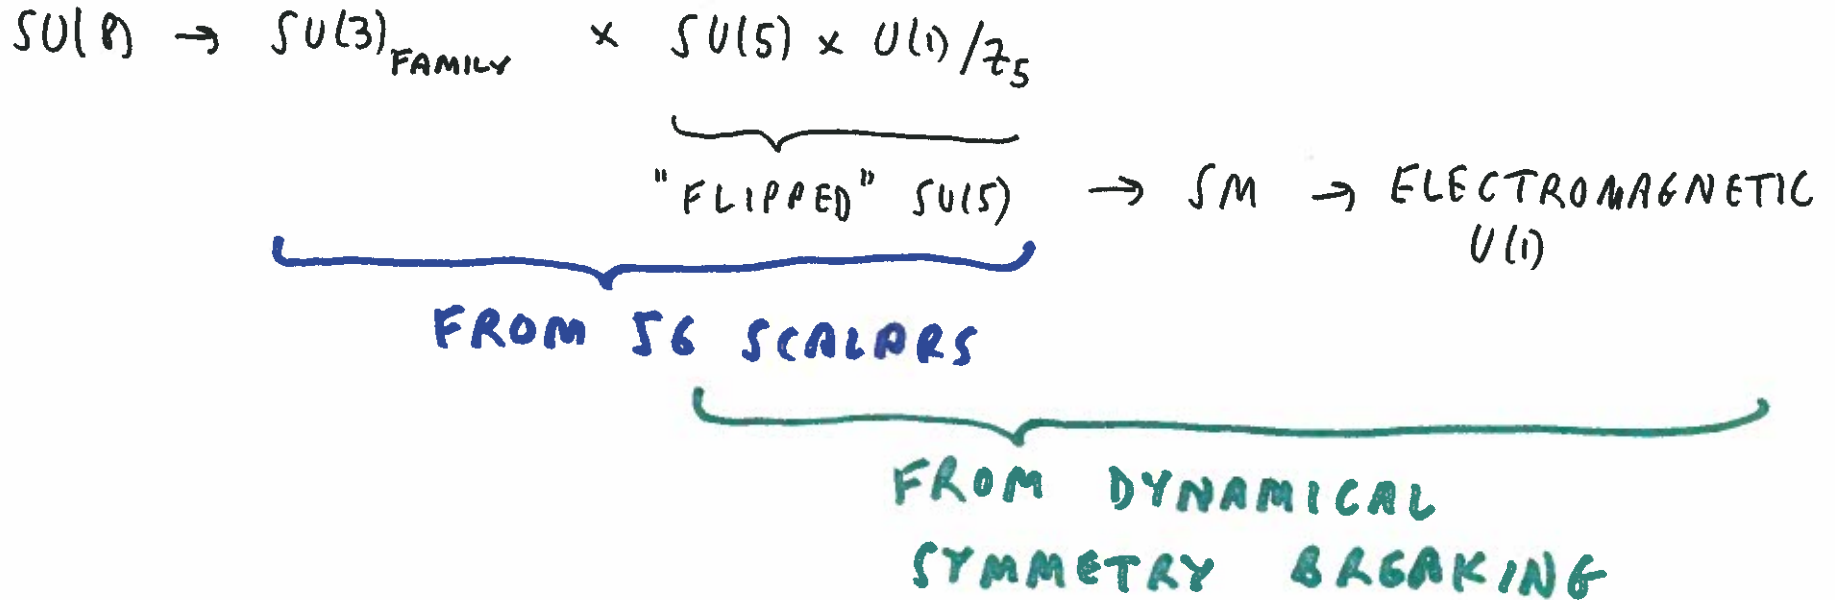 SU(8) → SU(3)FAMILY × SU(5) × U(1)/Z5
"FLIPPED" SU(5) → SM → ELECTROMAGNETIC
U(1)
FROM 56 SCALARS
FROM DYNAMICAL
SYMMETRY BREAKING